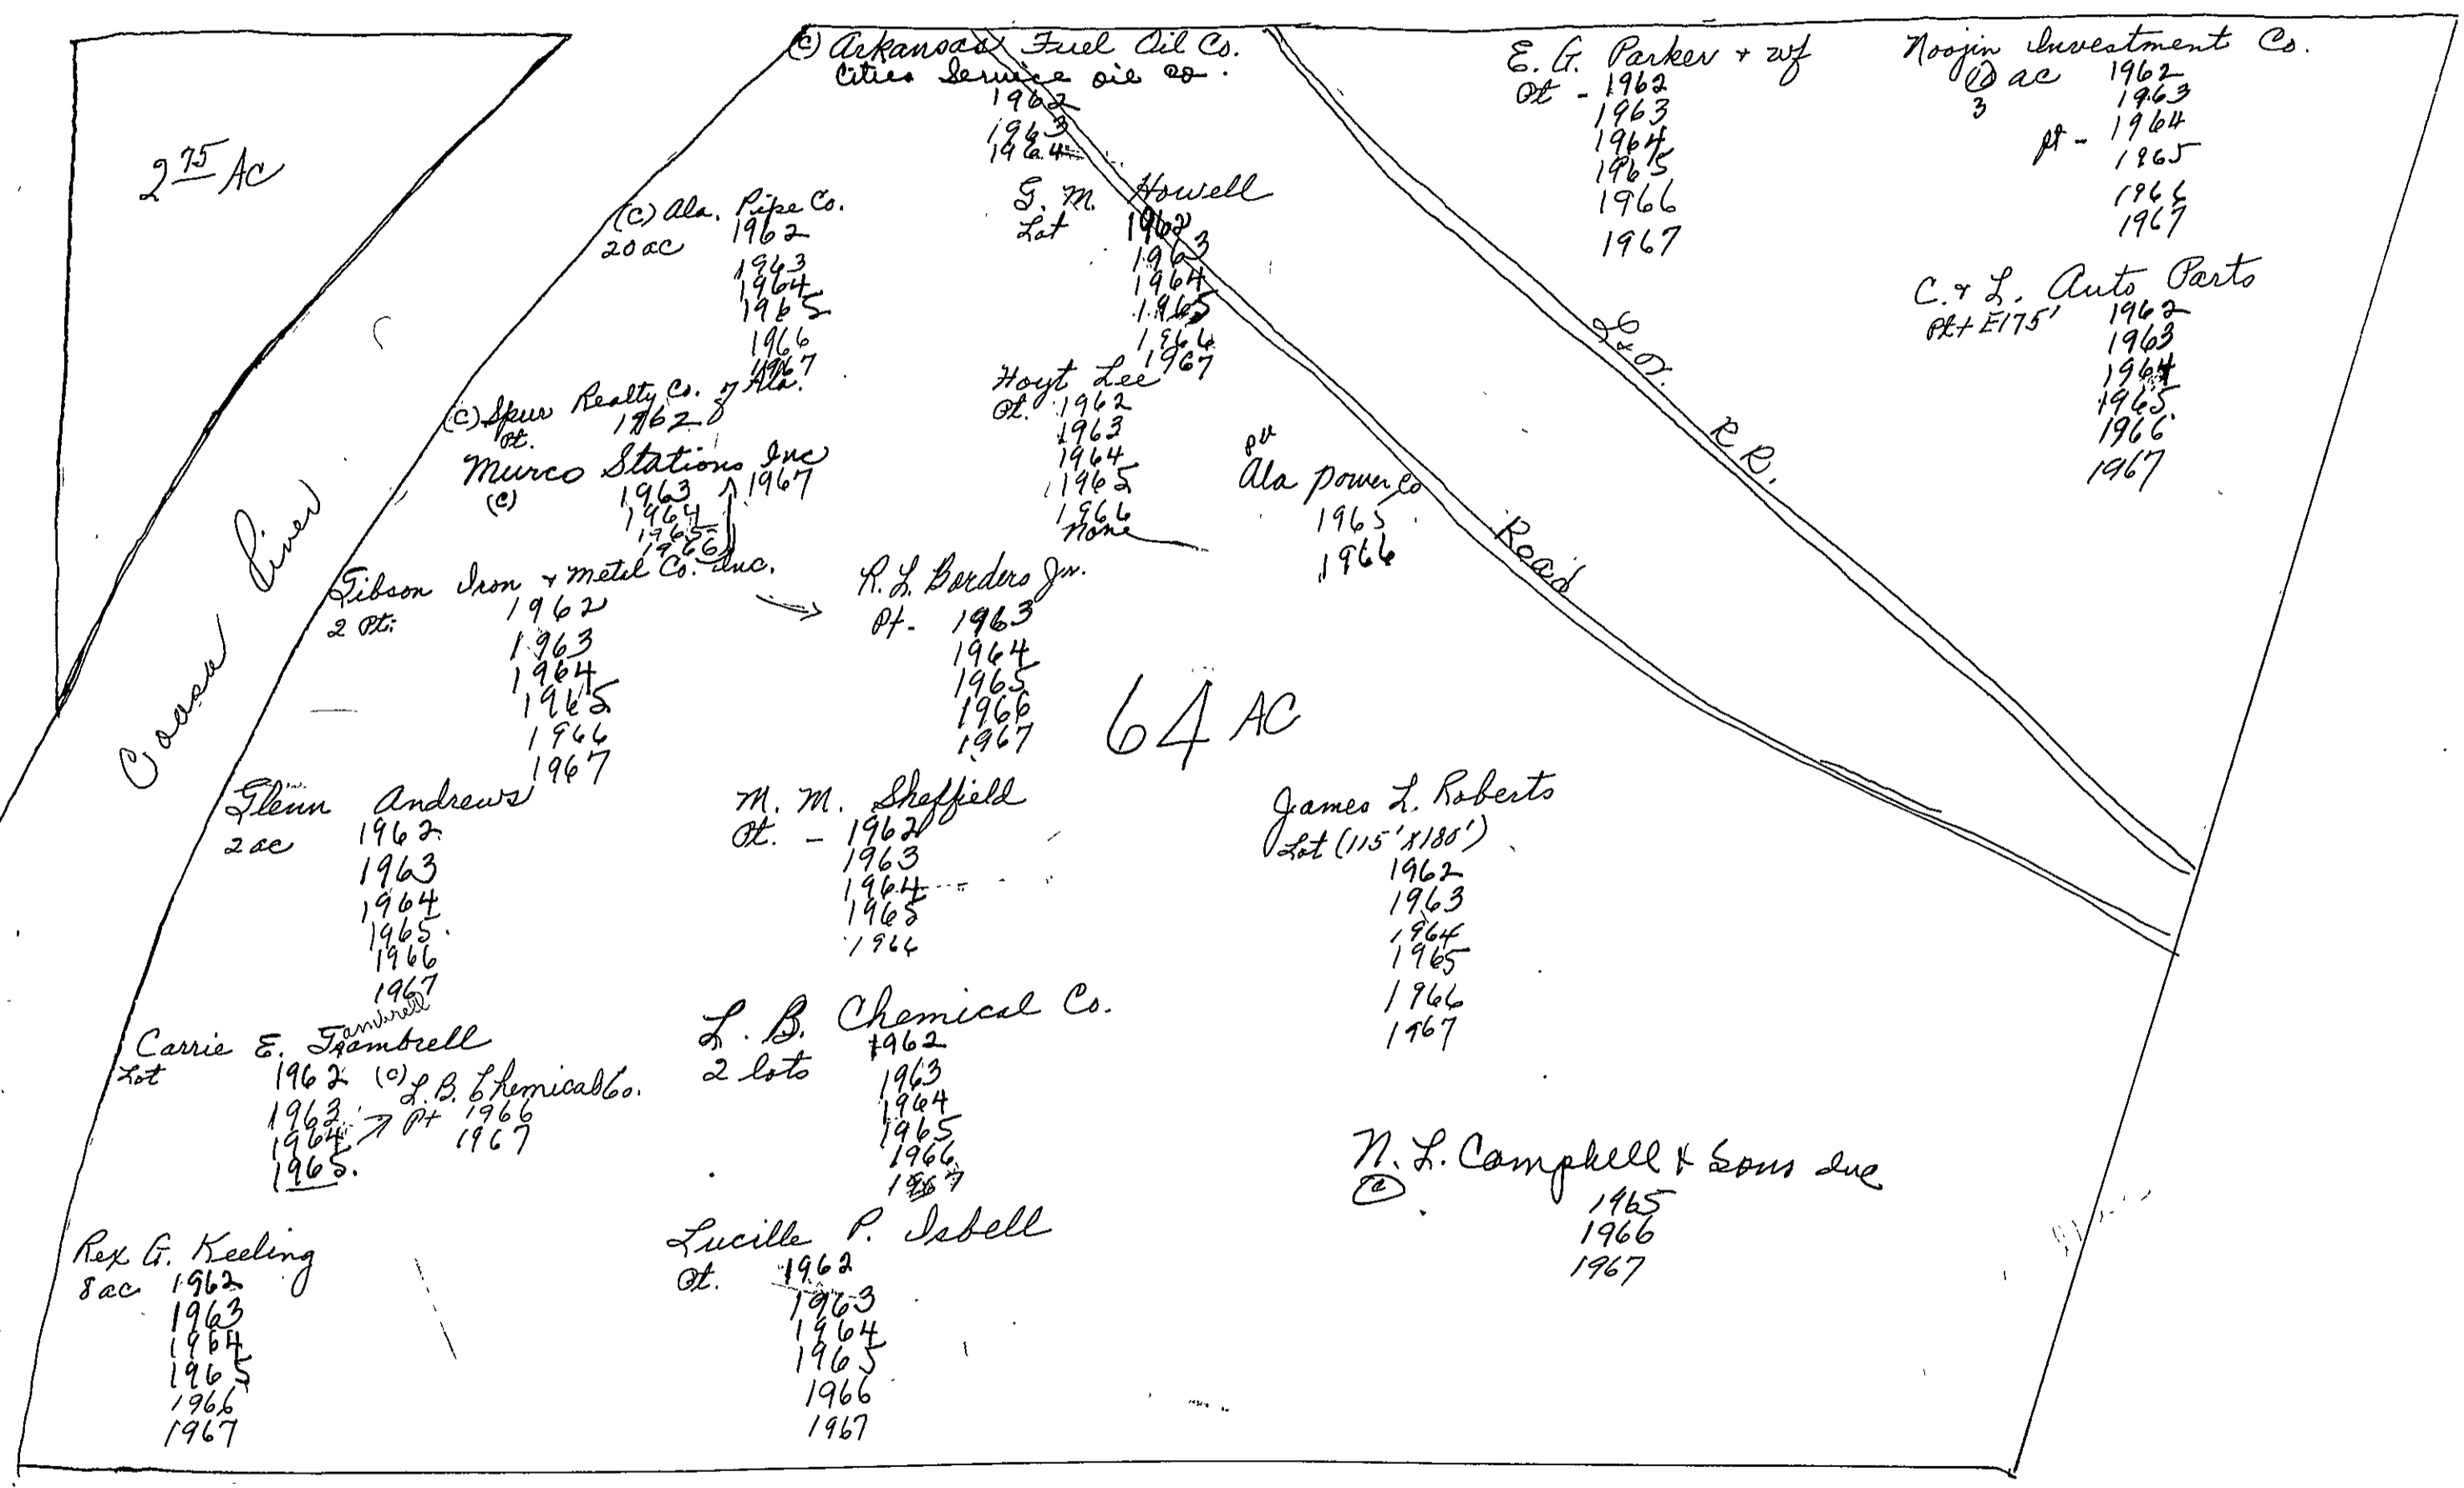 2 75 AC
Coosa River
(C) Arkansas Fuel Oil Co.
Cities Service oil co.
1962
1963
1964
E. G. Parker + wf
Pt - 1962
1963
1964
1965
1966
1967
Noojin Investment Co.
① ac 1962
3 1963
pt - 1964
1965
1966
1967
(C) Ala. Pipe Co.
20 ac 1962
1963
1964
1965
1966
1967
G. M. Howell
Lot 1962
1963
1964
1965
1966
1967
C. & L. Auto Parts
Pt + E175' 1962
1963
1964
1965
1966
1967
L & N. R.R.
Road
(C) Spur Realty Co. of Ala.
Pt. 1962
Murco Stations Inc
(C) 1963 1967
1964
1965
1966
Hoyt Lee
Pt. 1962
1963
1964
1965
1966
None
Ala Power Co
1965
1966
Gibson Iron & Metal Co. Inc.
2 Pt. 1962
1963
1964
1965
1966
1967
R. L. Borders Jr.
Pt - 1963
1964
1965
1966
1967
64 AC
Glenn Andrews
2 ac 1962
1963
1964
1965
1966
1967
M. M. Sheffield
Pt. - 1962
1963
1964
1965
1966
James L. Roberts
Lot (115' X 180')
1962
1963
1964
1965
1966
1967
Carrie E.
Lot 1962
1963
1964
1965
(C) L. B. Chemical Co.
Pt 1966
1967
L. B. Chemical Co.
2 lots 1962
1963
1964
1965
1966
1967
N. L. Campbell & Sons Inc
(C) 1965
1966
1967
Rex G. Keeling
8 ac 1962
1963
1964
1965
1966
1967
Lucille P. Isbell
Pt. 1962
1963
1964
1965
1966
1967